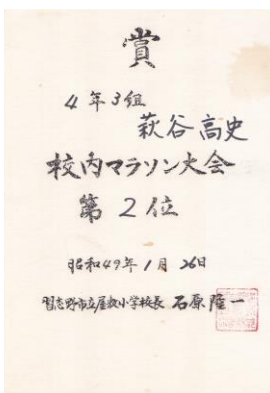 賞
4年3組
萩谷高史
校内マラソン大会
第2位
昭和49年1月26日
習志野市立屋敷小学校長 石原隆一